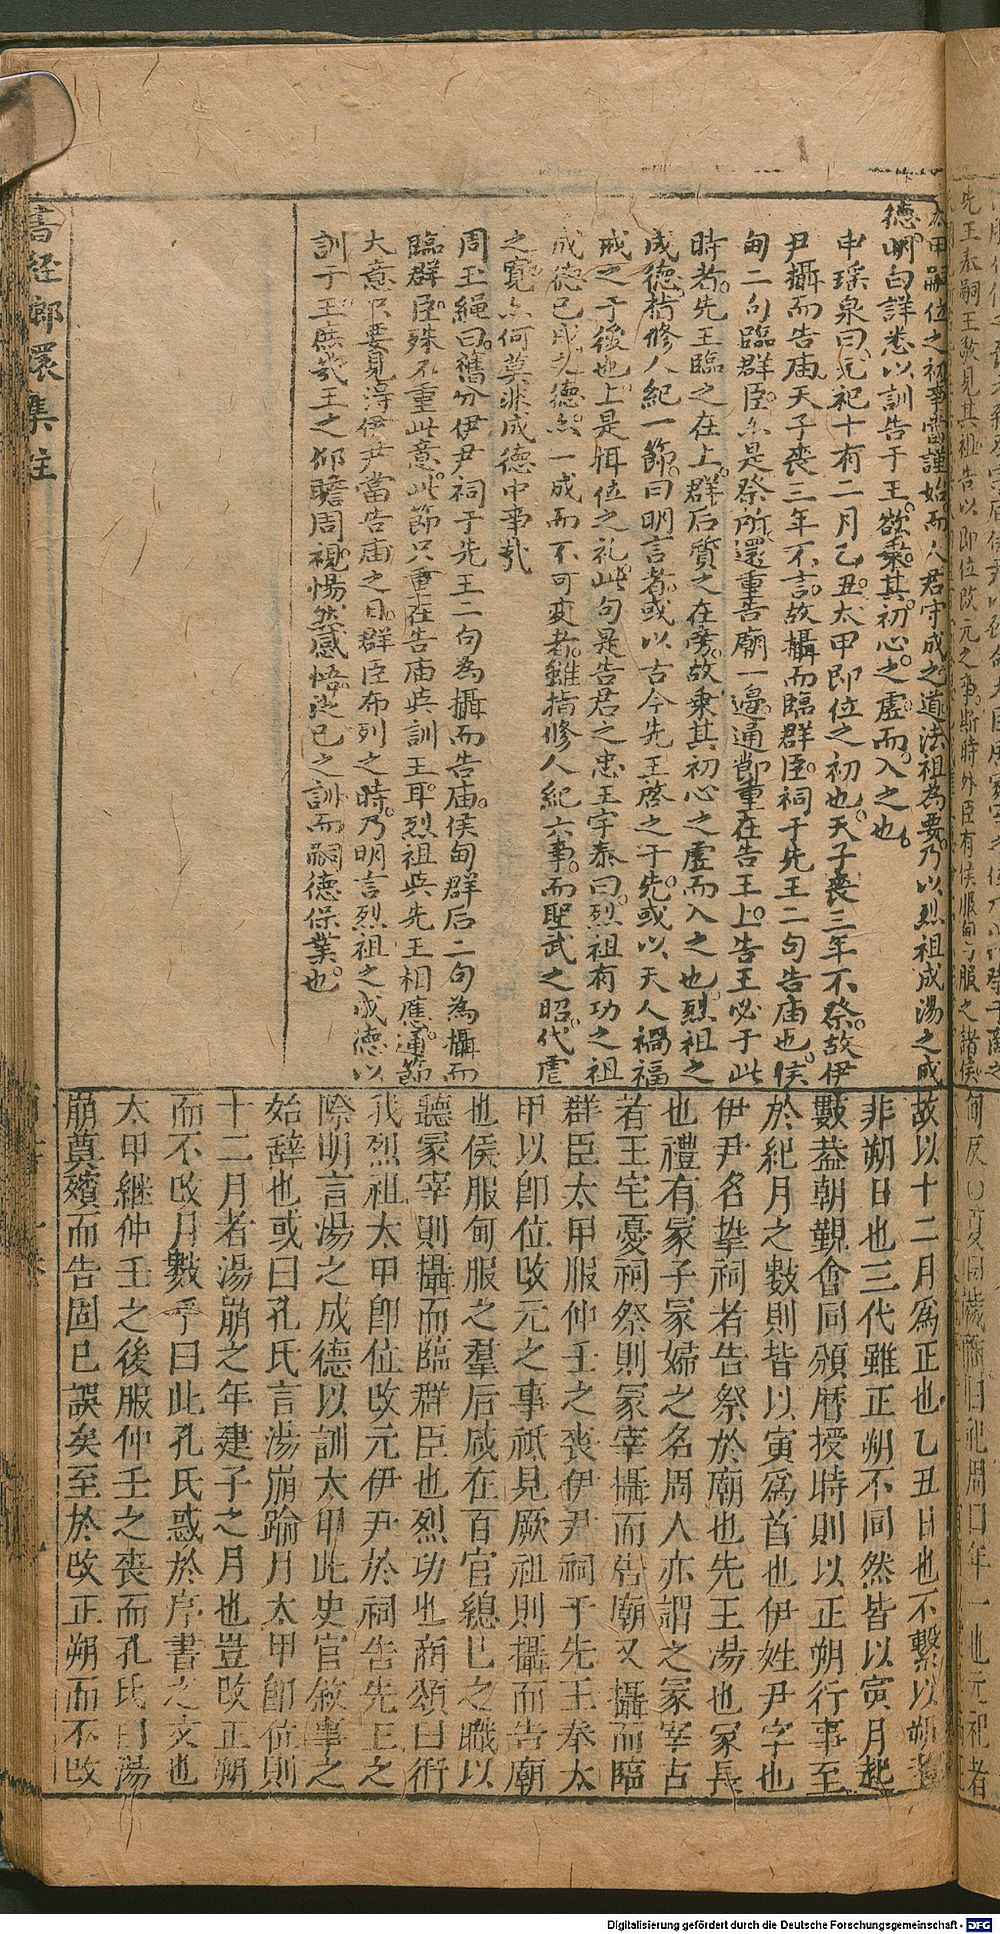 太甲嗣位之初事當謹始而人君守成之道法祖為要乃以烈祖成湯之成
德明白詳悉以訓告于王欲乘其初心之虛而入之也
申瑶泉曰元祀十有二月乙丑太甲即位之初也天子喪三年不祭故伊
尹攝而告庙天子喪三年不言故攝而臨群臣祠于先王二句告庙也侯
甸二句臨群臣亦是祭所還重告廟一邊通節重在告王上告王必于此
時者先王臨之在上群后質之在旁故乘其初心之虛而入之也烈祖之
成德指修人紀一節曰明言者或以古今先王啓之于先或以天人禍福
戒之于後也上是嗣位之礼此句是告君之忠王宇泰曰烈祖有功之祖
成德已成之德亦一成而不可変者雖指修人紀六事而聖武之昭代虐
之寬亦何莫非成德中事哉
周玉繩曰舊分伊尹祠于先王二句為攝而告庙侯甸群后二句為攝而
臨群臣殊不重此意此節只重在告庙与訓王耳烈祖与先王相應通節
大意只要見得伊尹當告庙之日群臣布列之時乃明言烈祖之成德以
訓于王庶幾王之仰瞻周視惕然感悟從已之訓而嗣德保業也
故以十二月爲正也乙丑日也不繫以朔者
非朔日也三代雖正朔不同然皆以寅月起
數葢朝觐會同頒曆授時則以正朔行事至
於紀月之數則皆以寅爲首也伊姓尹字也
伊尹名摯祠者告祭於廟也先王湯也冢長
也禮有冢子冢婦之名周人亦謂之冢宰古
者王宅憂祠祭則冢宰攝而告廟又攝而臨
群臣太甲服仲壬之喪伊尹祠于先王奉太
甲以卽位改元之事祗見厥祖則攝而告廟
也侯服甸服之羣后咸在百官總已之職以
聽冢宰則攝而臨群臣也烈功也商頌曰衎
我烈祖太甲卽位改元伊尹於祠告先王之
際明言湯之成德以訓太甲此史官敘事之
始辭也或曰孔氏言湯崩踰月太甲卽位則
十二月者湯崩之年建子之月也豈改正朔
而不改月數乎曰此孔氏惑於序書之文也
太甲継仲壬之後服仲壬之喪而孔氏曰湯
崩奠殯而告固已誤矣至於改正朔而不改
書經郎環集註
Digitalisierung gefördert durch die Deutsche Forschungsgemeinschaft - DFG